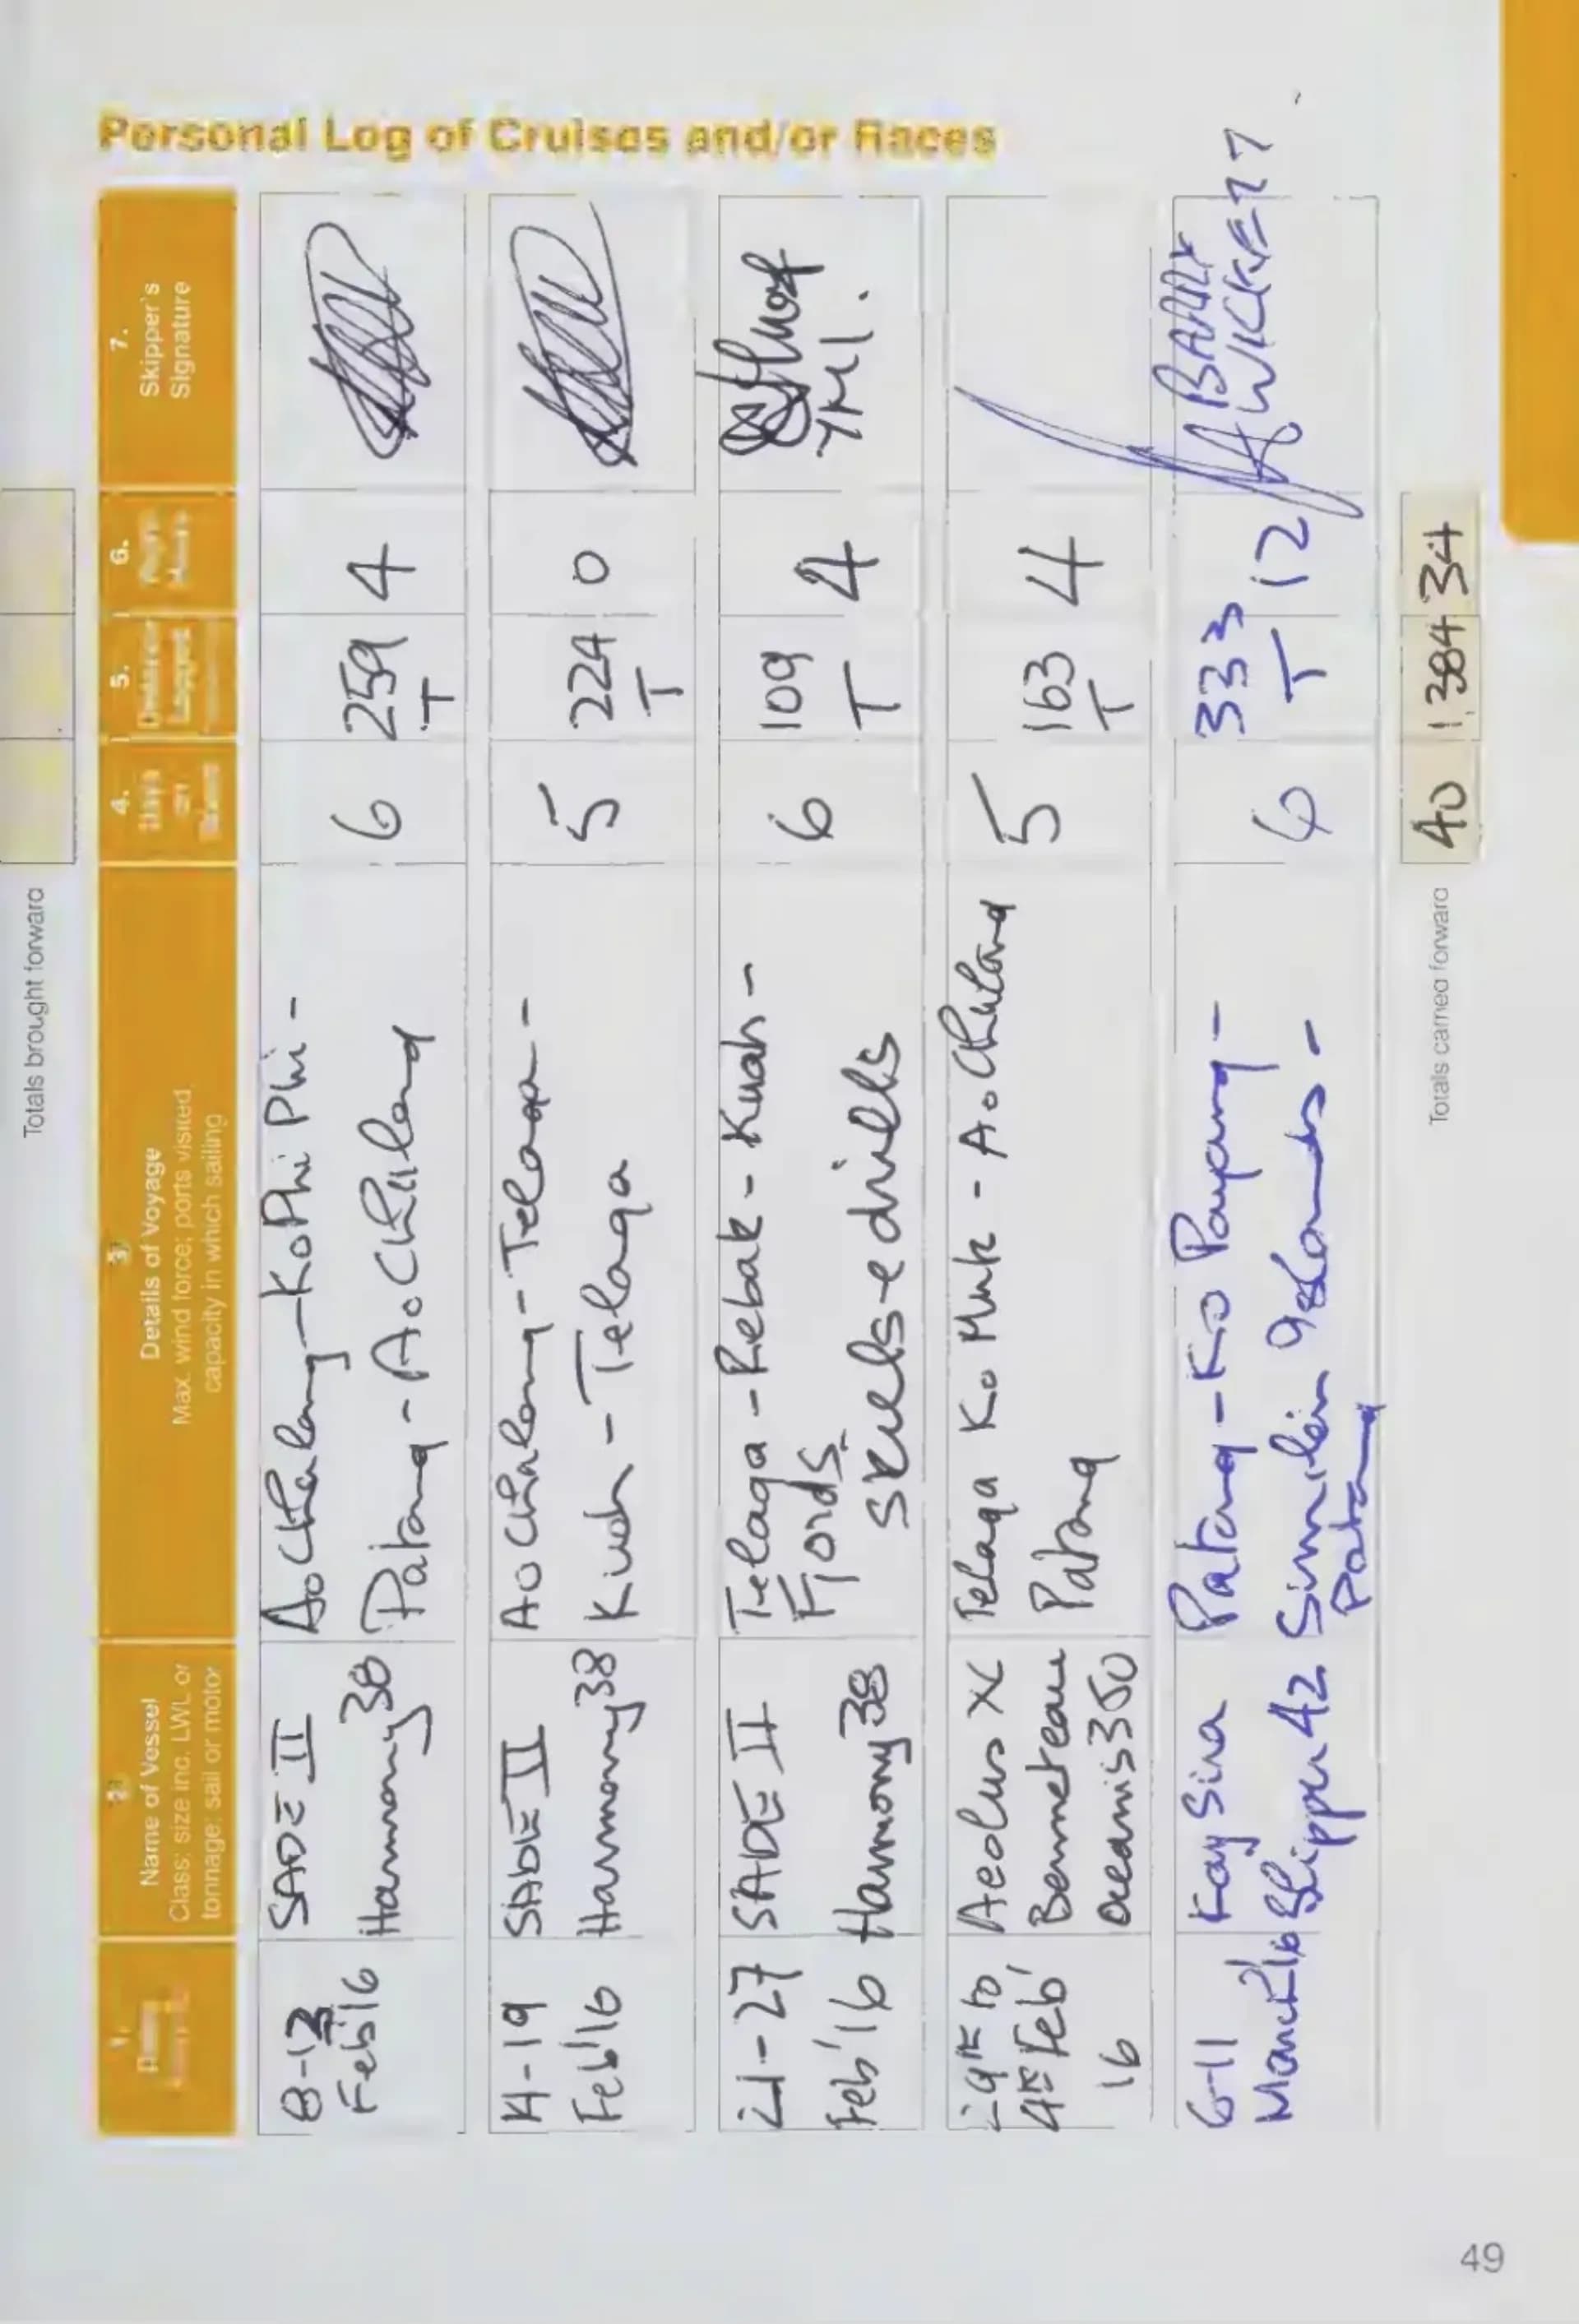 Personal Log of Cruises and/or Races
Totals brought forward
1.
2.
Name of Vessel
Class: size inc. LWL or
tonnage: sail or motor
3.
Details of Voyage
Max. wind force; ports visited;
capacity in which sailing
4.
Days
on
5.
Distance
Logged
6.
Night
Hours
7.
Skipper's
Signature
8-13
Feb'16
SADE II
Harmony 38
Ao Chalong - Ko Phi Phi -
Patong - Ao Chalong
6
259
T
4
14-19
Feb'16
SADE II
Harmony 38
Ao Chalong - Telaga -
Kuah - Telaga
5
224
T
0
21-27
Feb'16
SADE II
Harmony 38
Telaga - Rebak - Kuah -
Fjords.
skills + drills
6
109
T
4
29th to
4th Feb'
16
Aeolus XC
Benneteau
Oceanis 350
Telaga Ko Muk - Ao Chalong
Patong
5
163
T
4
6-11
March '16
Kay Sira
Slipper 42
Patong - Ko Payang -
Similan Islands -
Patong
6
333
T
12
BARRY
Totals carried forward
40
1,384
34
49